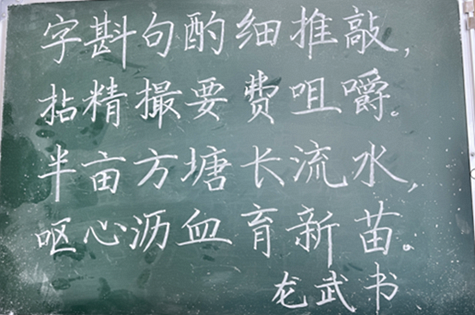 字斟句酌细推敲,
拈精撮要费咀嚼。
半亩方塘长流水,
呕心沥血育新苗。
龙武书